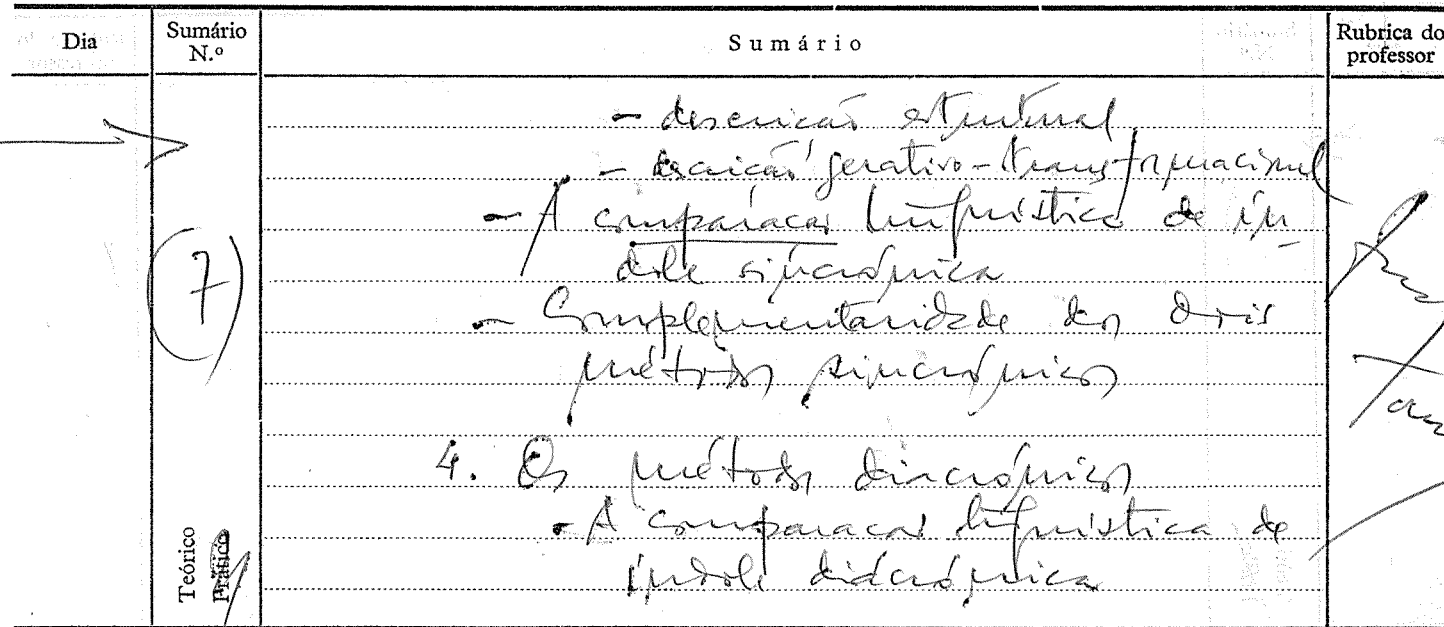 Dia
Sumário N.º
Sumário
Rubrica do professor
- descrição estrutural
- descrição gerativo-transformacional
- A comparação linguística de ín-
dole sincrónica
- Complementaridade dos dois
métodos sincrónicos
7
4. Os métodos diacrónicos
- A comparação linguística de
índole diacrónica
Teórico
Prático